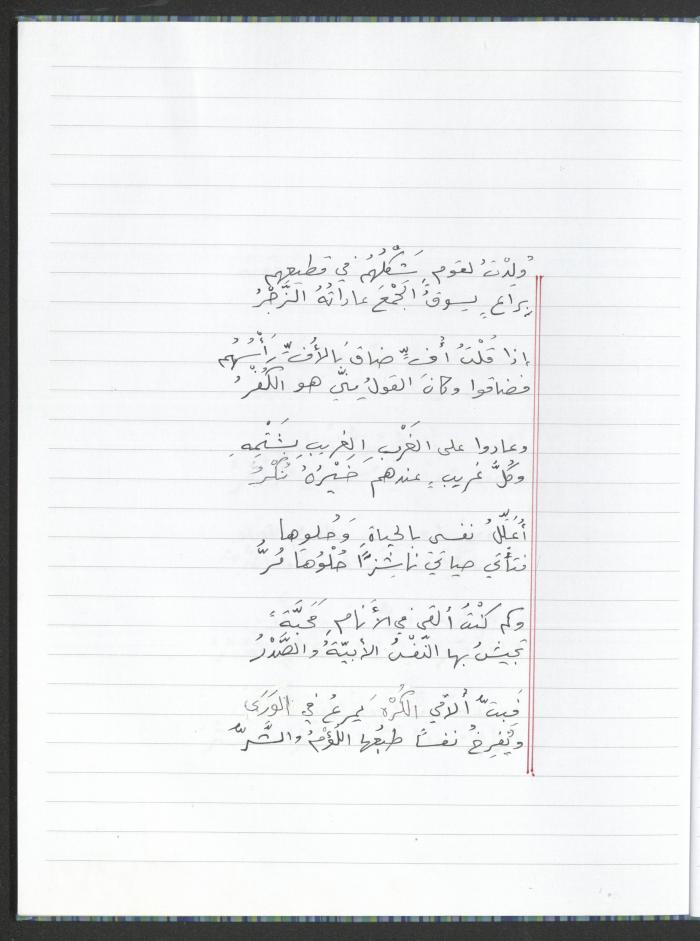 وُلِدْتُ لقومٍ شَكْلُهُمْ في قطيعِهِم
بِراعٍ يسوقُ الجَمْعَ عاداتُهُ الزَّجْرُ
إذا قُلْتُ أُفٍّ ضاقَ بالأُفِّ رَأْسُهُم
فضاقوا وكانَ القولُ مِنّي هو الكُفْرُ
وعادوا على الغَرْبِ الغريبِ بِشَتْمِهِ
وكُلُّ غريبٍ عندهم خَيْرُهُ نُكْرُ
أُعَلِّلُ نفسي بالحياةِ وَحُلوها
فتأتي حياتي ناشِزًا حُلْوُهَا مُرُّ
وكم كُنْتُ ألقى في الأنامِ مَحَبَّةً
تجيشُ بها النّفْسُ الأبيّةُ والصَّدْرُ
فَبِتُّ أُلاقي الكُرْهَ يمرعُ في الوَرَى
ويُفرِخُ نفساً طبعُها اللُّؤْمُ والشَّرُّ